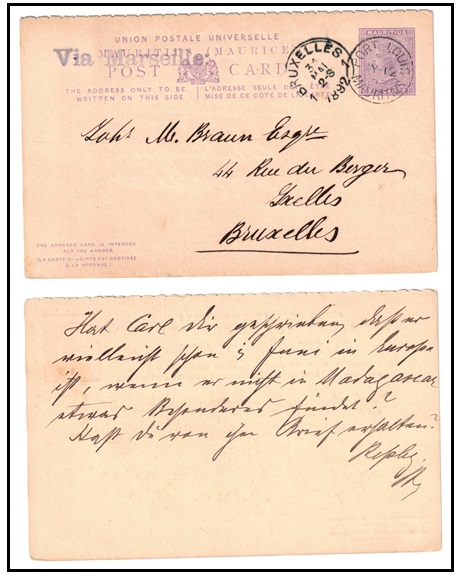 UNION POSTALE UNIVERSELLE
MAURITIUS (MAURICE)
Via Marseille.
POST CARD
THE ADDRESS ONLY TO BE
WRITTEN ON THIS SIDE
L'ADRESSE SEULE DOIT ÊTRE
MISE DE CE CÔTÉ DE LA CARTE
MAURITIUS
BRUXELLES 1
31
MAI
1892
PORT LOUIS
MY 12
MAURITIUS
Joh: M. Braun Esqre
44 Rue du Berger
Ixelles
Bruxelles
THE ANNEXED CARD IS INTENDED
FOR THE ANSWER.
(LA CARTE CI-JOINTE EST DESTINÉE
À LA RÉPONSE.)
Hat Carl Dir geschrieben, daß er
vielleicht schon Juni in Europa
ist, wenn er nicht in Madagascar
etwas Besonderes findet?
Hast Du von ihm Brief erhalten?